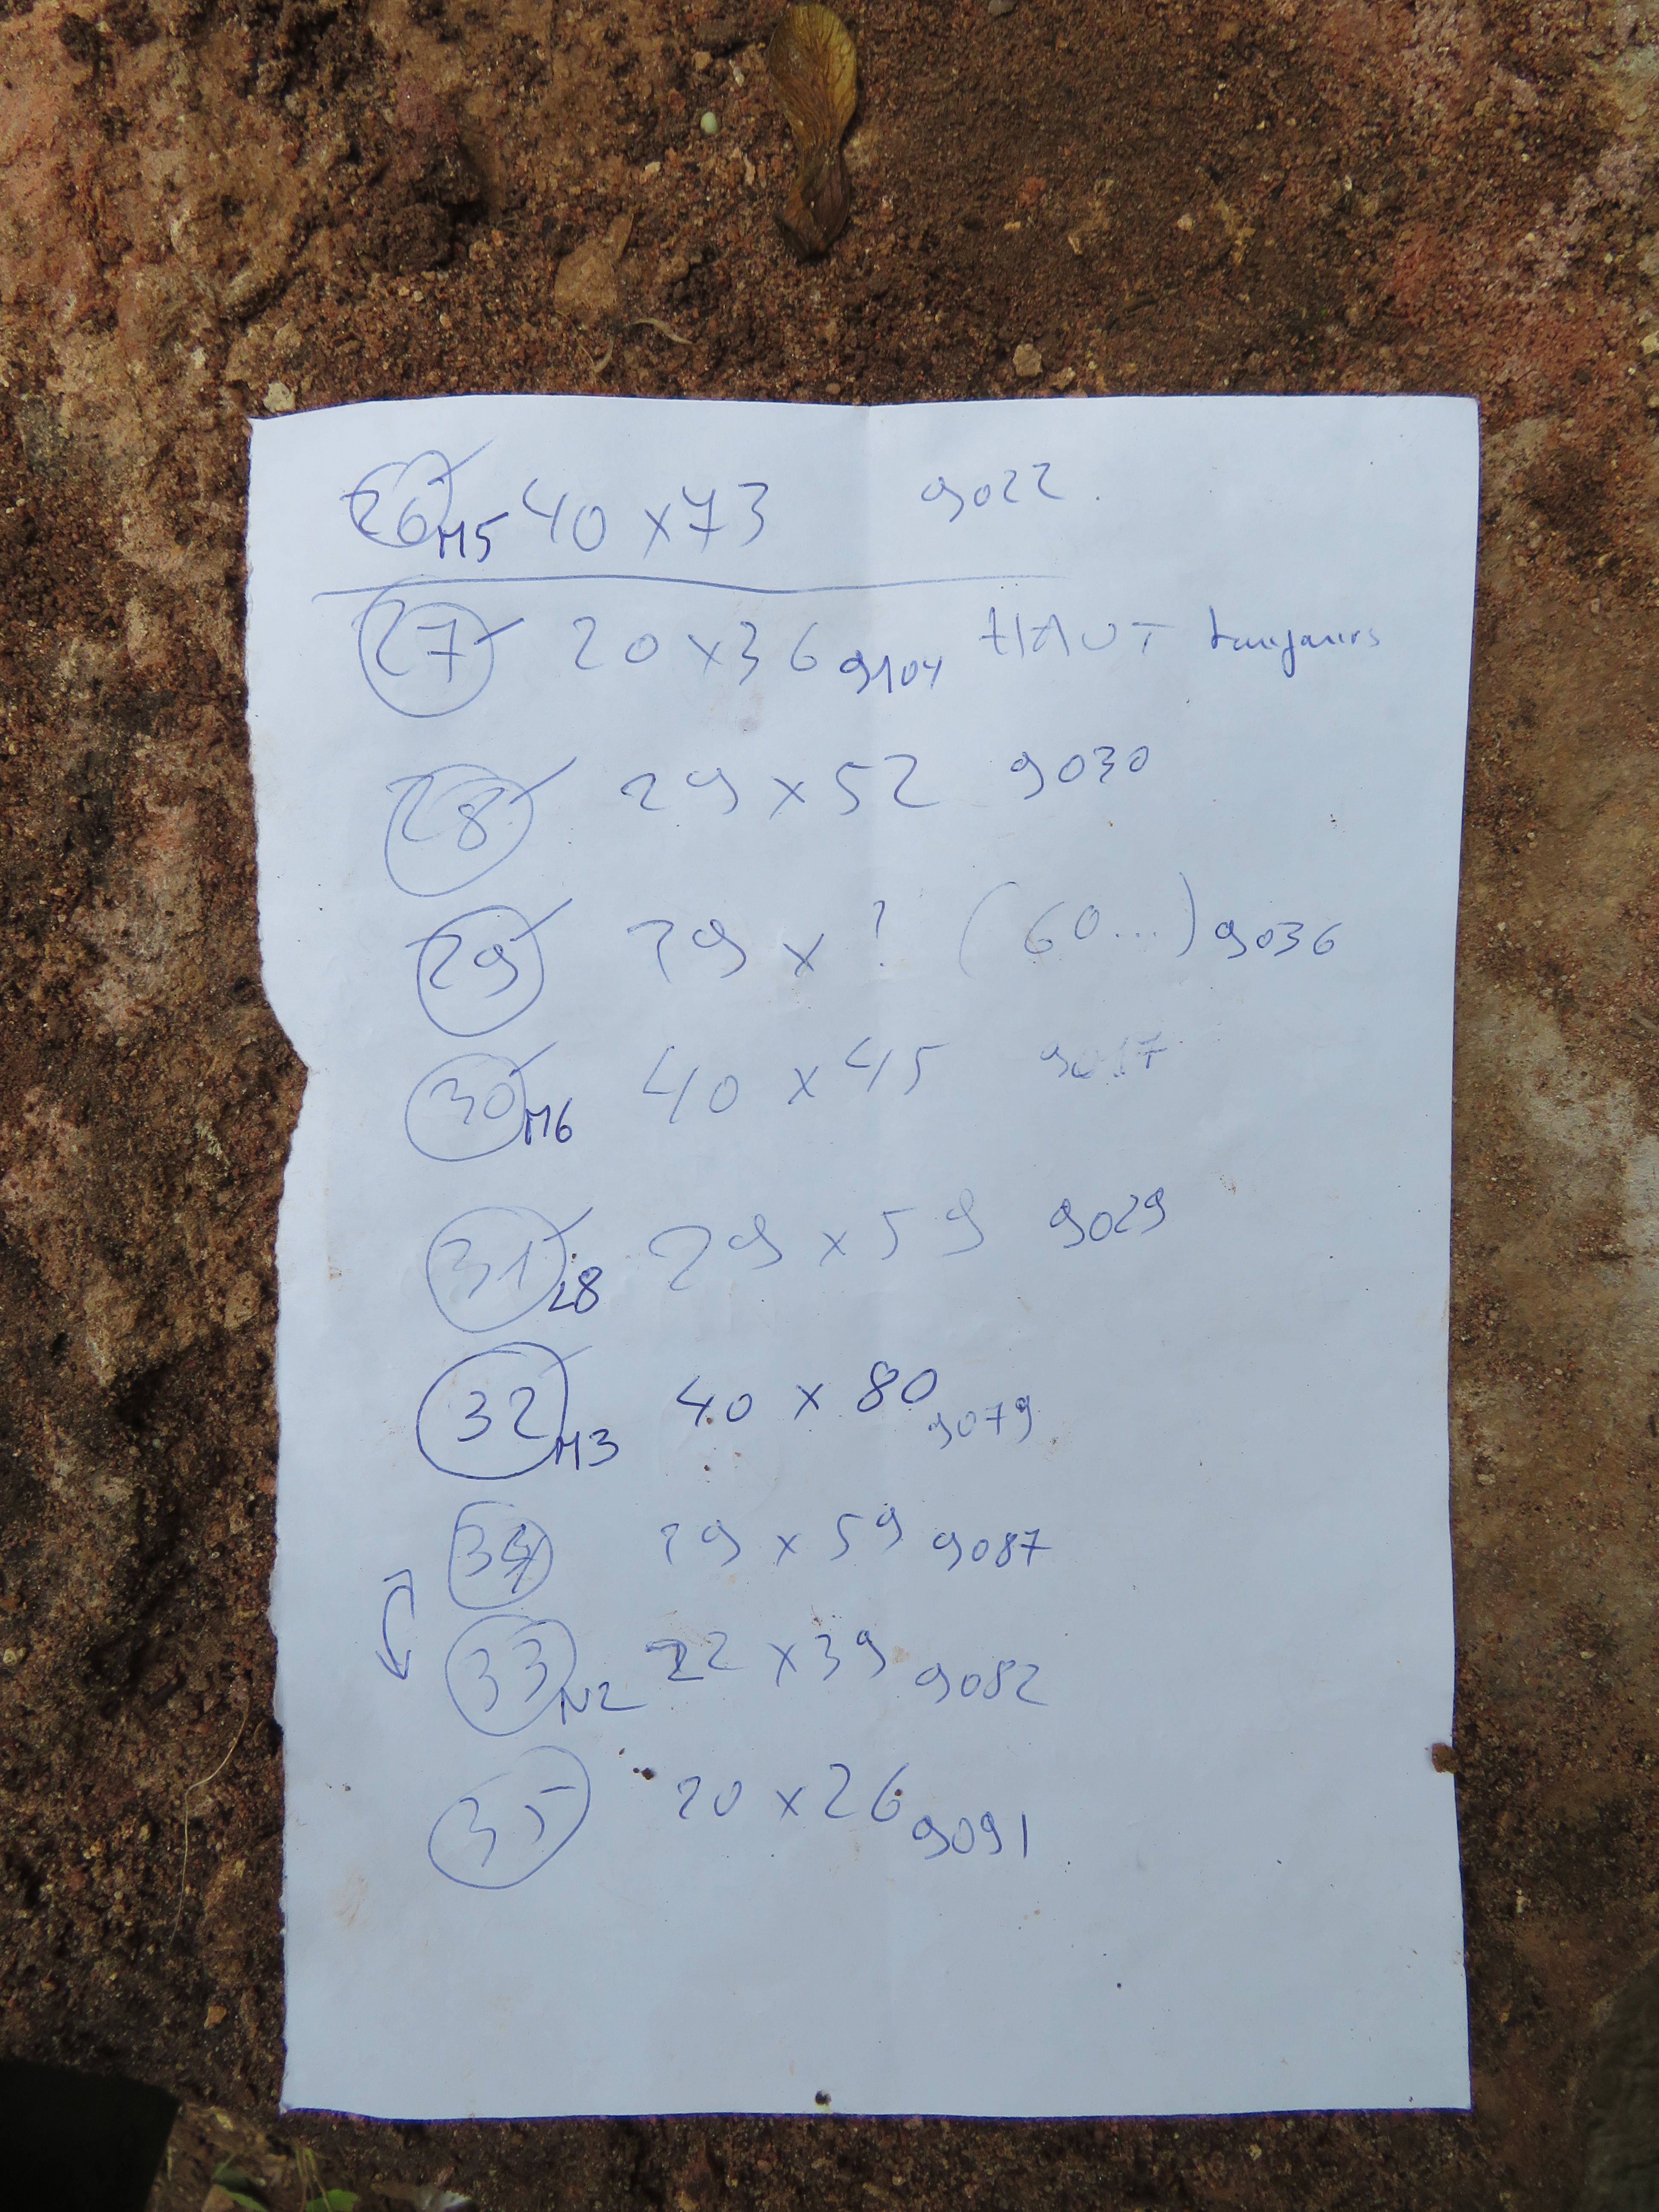 26 M5 40 x 73 9022
27 20 x 36 9104 HAUT
28 29 x 52 9030
29 29 x ? (60...) 9036
30 M6 40 x 45 9017
31 L8 29 x 59 9029
32 M3 40 x 80 9079
34 29 x 59 9087
33 N2 22 x 39 9082
35 20 x 26 9091